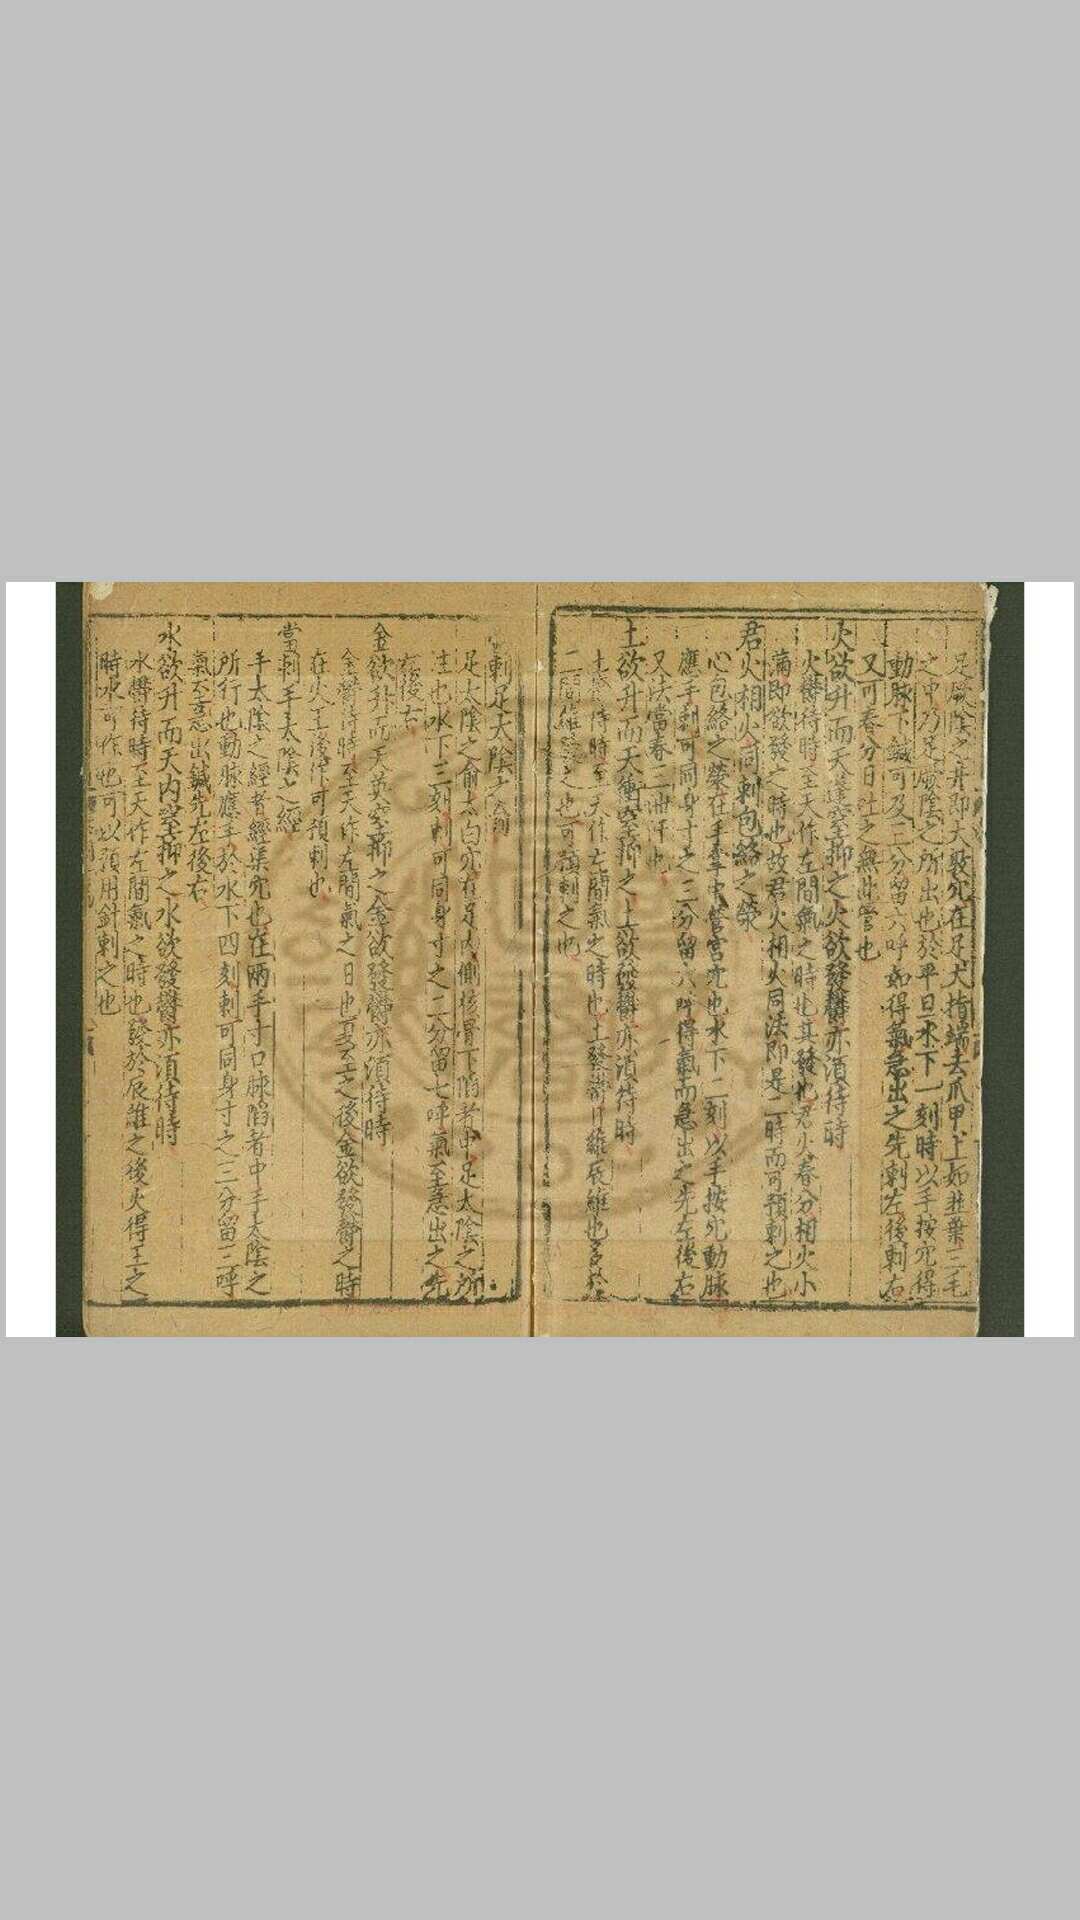 足厥陰之井即大敦穴在足大指端去爪甲上如韭葉三毛
之中乃足厥陰之所出也於平旦水下一刻時以手按穴得
動脉下鍼可及三分留六呼如得氣急出之先刺左後刺右
又可春分日吐之無此〻也
火欲升而天蓬窒抑之火欲發鬱亦湏待時
火鬱待時至天作左間氣之時也其發也君火春分相火小
滿即欲發之時也故君火相火同法即是二時而可預刺之也
君火相火同刺包絡之滎
心包絡之滎在手掌中勞宮穴也水下二刻以手按穴動脉
應手刺可同身寸之三分留六呼得氣而急出之先左後右
又法當春三汗也
土欲升而天衝窒抑之土欲發鬱亦湏待時
土鬱待時至天作左間氣之時也土發辰維也
二間維之也可預刺之也
刺足太陰之俞
足太陰之俞太白穴在足內側核骨下陷者中足太陰之所
注也水下三刻刺可同身寸之二分留七呼氣至急出之先
左後右
金欲升而天英窒抑之金欲發鬱亦湏待時
金鬱待時至天作左間氣之日也至之後金欲發鬱之時
在火王後作可預刺也
當刺手太陰之經
手太陰之經者經渠穴也在兩手寸口脉陷者中手太陰之
所行也動脉應手於水下四刻刺可同身寸之三分留三呼
氣至急出鍼先左後右
水欲升而天內窒抑之水欲發鬱亦湏待時
水鬱待時至天作左間氣之時也發於辰維之後火得王之
時水可作也可以預用針刺之也